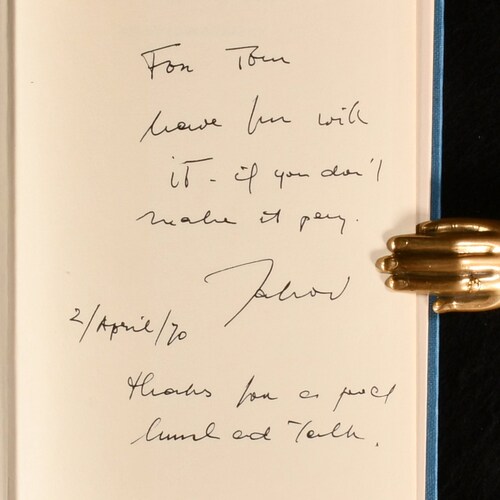 For Tom
have fun with
it - if you don't
make it pay.
2/April/70
thanks for a good
lunch and talk.